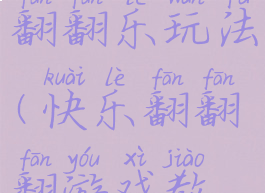 fān fān lè wán fǎ
翻翻乐玩法
kuài lè fān fān
(快乐翻翻
fān yóu xì jiào
翻游戏教